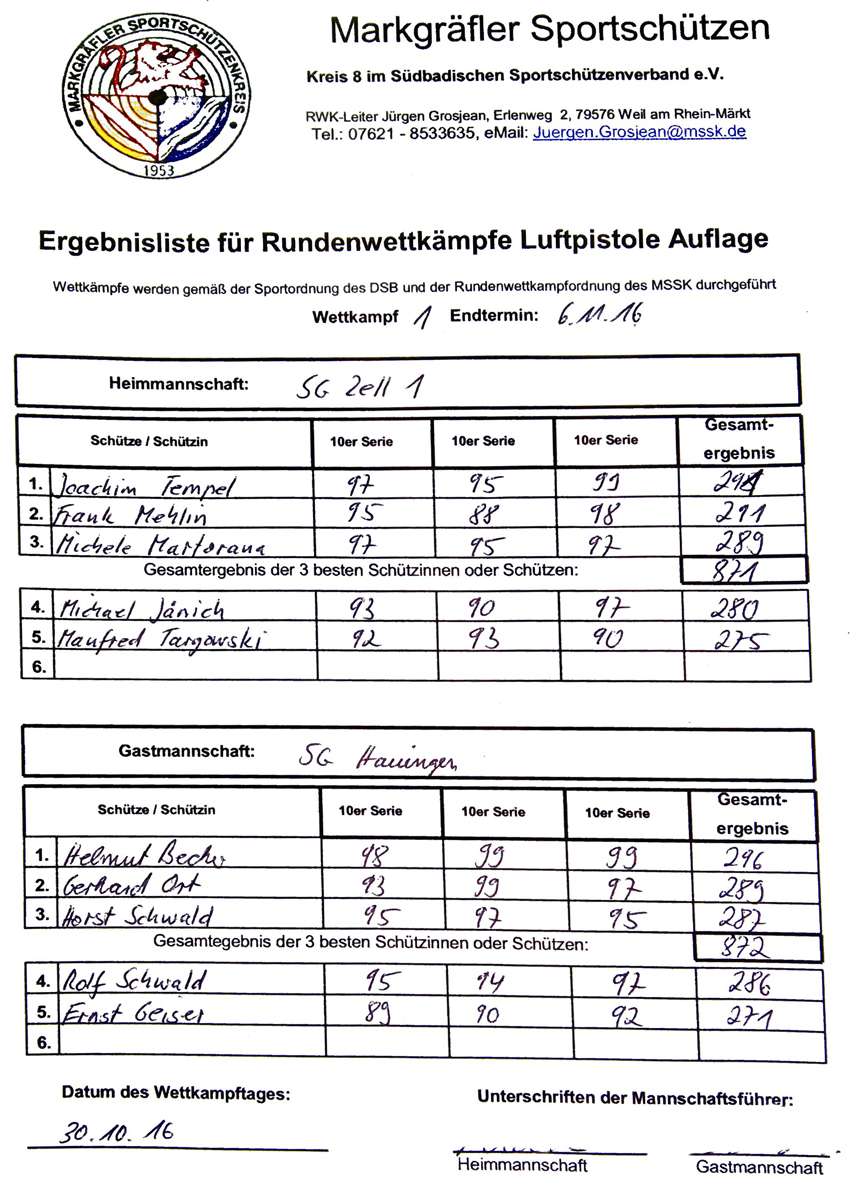 MARKGRÄFLER SPORTSCHÜTZENKREIS
1953
Markgräfler Sportschützen
Kreis 8 im Südbadischen Sportschützenverband e.V.
RWK-Leiter Jürgen Grosjean, Erlenweg 2, 79576 Weil am Rhein-Märkt
Tel.: 07621 - 8533635, eMail: Juergen.Grosjean@mssk.de
Ergebnisliste für Rundenwettkämpfe Luftpistole Auflage
Wettkämpfe werden gemäß der Sportordnung des DSB und der Rundenwettkampfordnung des MSSK durchgeführt
Wettkampf 1 Endtermin: 6.11.16
Heimmannschaft: SG Zell 1
Schütze / Schützin 10er Serie 10er Serie 10er Serie Gesamt-
ergebnis
1. Joachim Tempel 97 95 99 291
2. Frank Mehlin 95 88 98 291
3. Michele Martorana 97 95 97 289
Gesamtergebnis der 3 besten Schützinnen oder Schützen: 871
4. Michael Jänich 93 90 97 280
5. Manfred Targowski 92 93 90 275
6.
Gastmannschaft: SG Hauingen
Schütze / Schützin 10er Serie 10er Serie 10er Serie Gesamt-
ergebnis
1. Helmut 98 99 99 296
2. Gerhard Ort 93 99 97 289
3. Horst Schwald 95 97 95 287
Gesamtegebnis der 3 besten Schützinnen oder Schützen: 872
4. Rolf Schwald 95 94 97 286
5. Ernst Geiser 89 90 92 271
6.
Datum des Wettkampftages:
Unterschriften der Mannschaftsführer:
30.10.16
Heimmannschaft Gastmannschaft